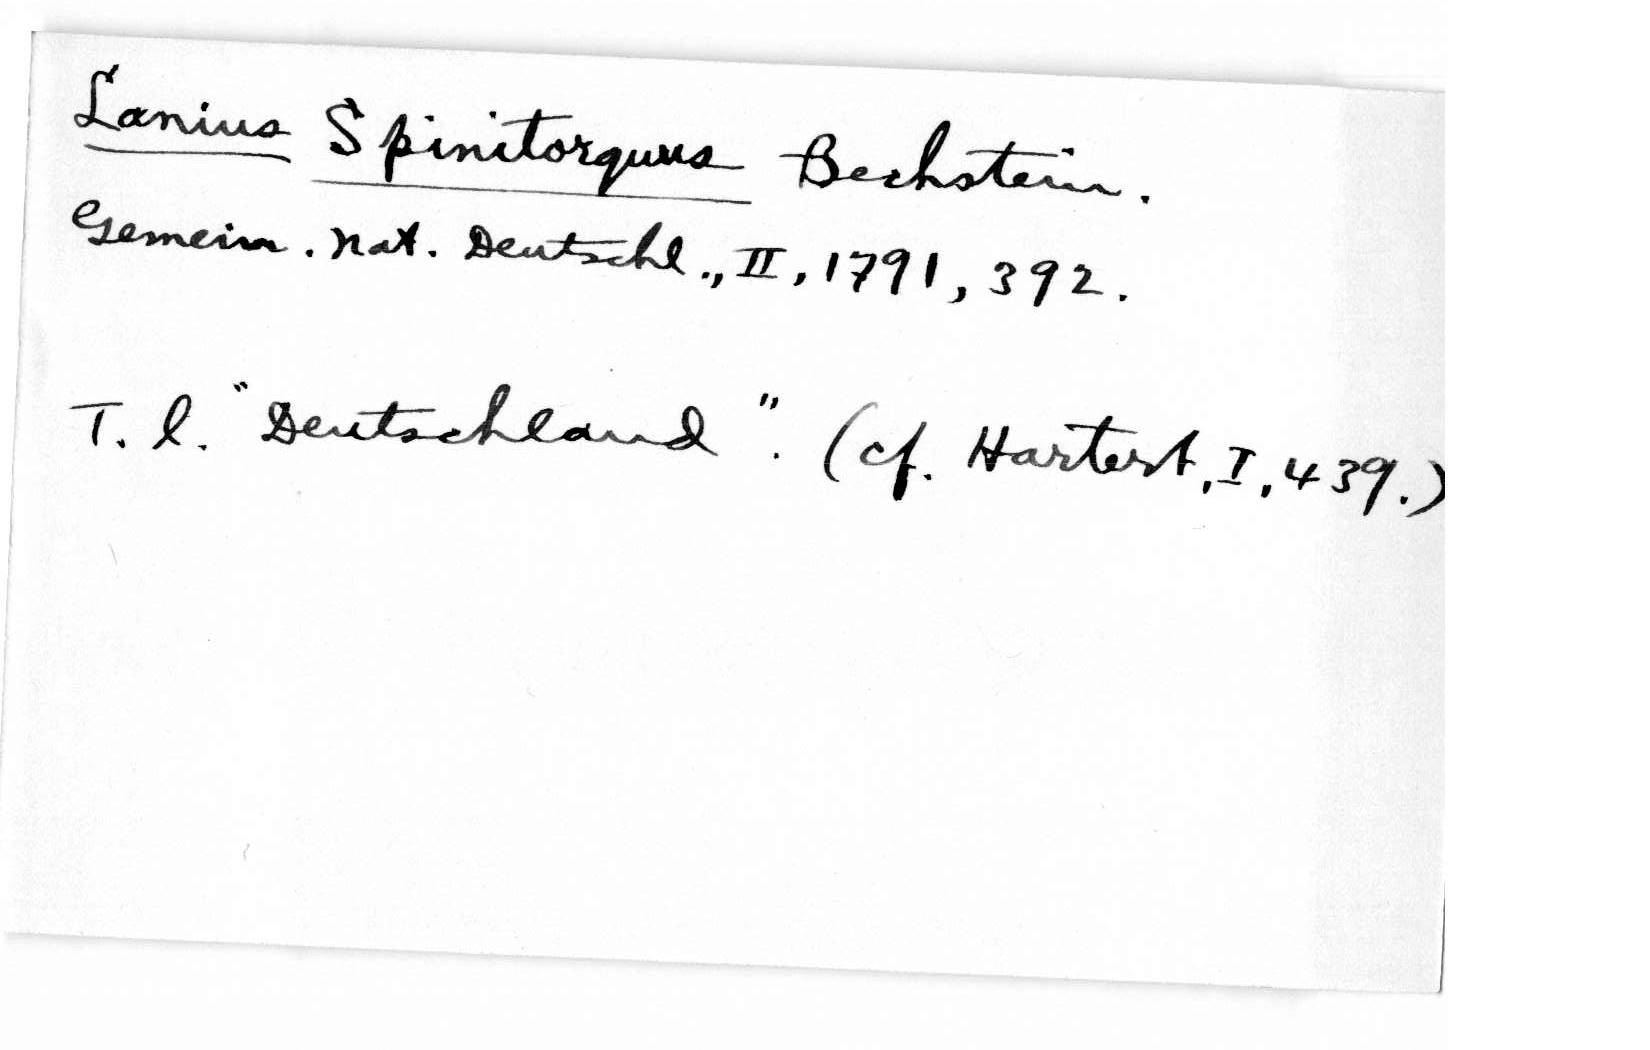 Lanius Spinitorquus Bechstein.
Gemein. Nat. Deutschl., II, 1791, 392.
T. l. "Deutschland". (cf. Hartert, I, 439.)